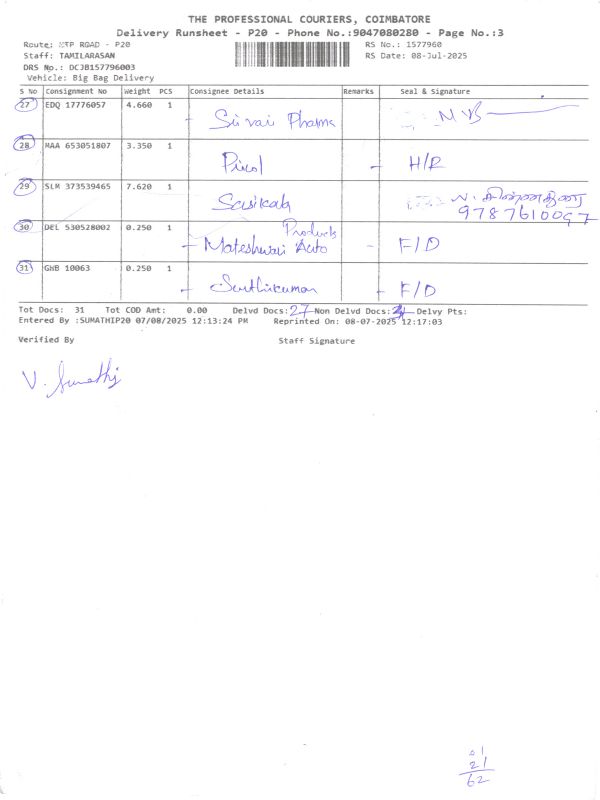 THE PROFESSIONAL COURIERS, COIMBATORE
Delivery Runsheet - P20 - Phone No.:9047080280 - Page No.:3
Route: MTP ROAD - P20
RS No.: 1577960
Staff: TAMILARASAN
RS Date: 08-Jul-2025
DRS No.: DCJB157796003
Vehicle: Big Bag Delivery
S No Consignment No Weight PCS Consignee Details Remarks Seal & Signature
27 EDQ 17776057 4.660 1
Pharma
28 MAA 653051807 3.350 1
Pixol H/R
29 SLM 373539465 7.620 1
Sasikala
9787610097
30 DEL 530528002 0.250 1
Products
Mateshwari Auto F/D
31 GHB 10063 0.250 1
F/D
Tot Docs: 31 Tot COD Amt: 0.00 Delvd Docs: 27 Non Delvd Docs: Delvy Pts:
Entered By :SUMATHIP20 07/08/2025 12:13:24 PM Reprinted On: 08-07-2025 12:17:03
Verified By Staff Signature
V. Sumathi
21
62